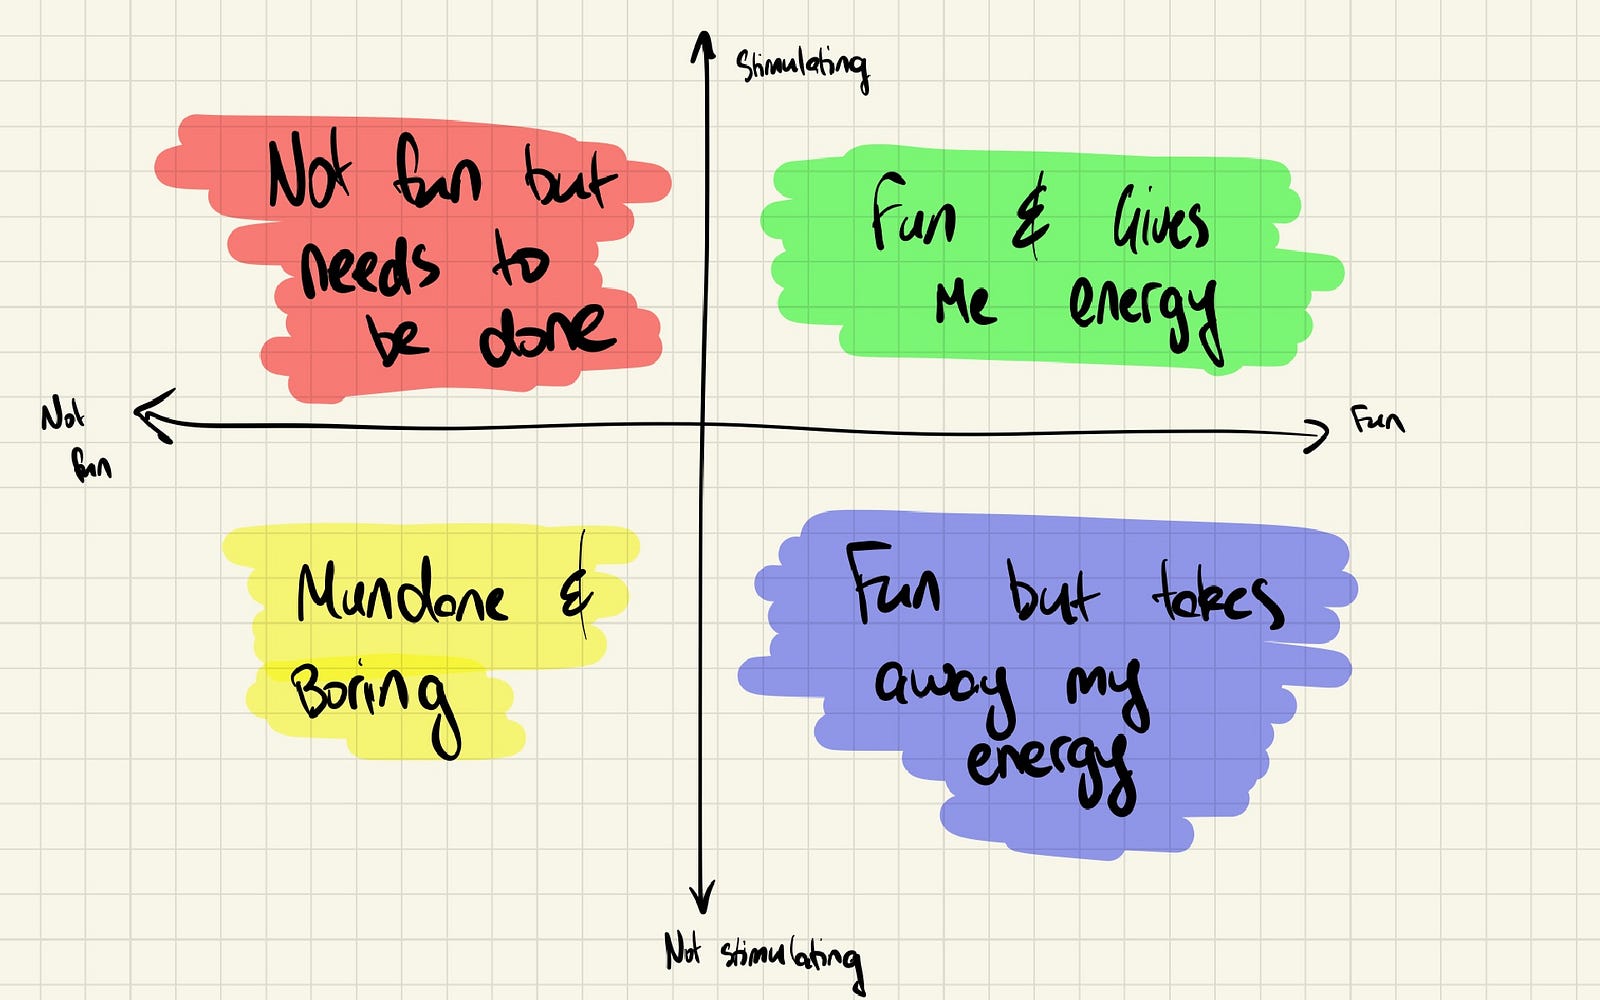 Stimulating
Not fun but
needs to
be done
Fun & Gives
Me energy
Not
fun
Fun
Mundane &
Boring
Fun but takes
away my
energy
Not stimulating